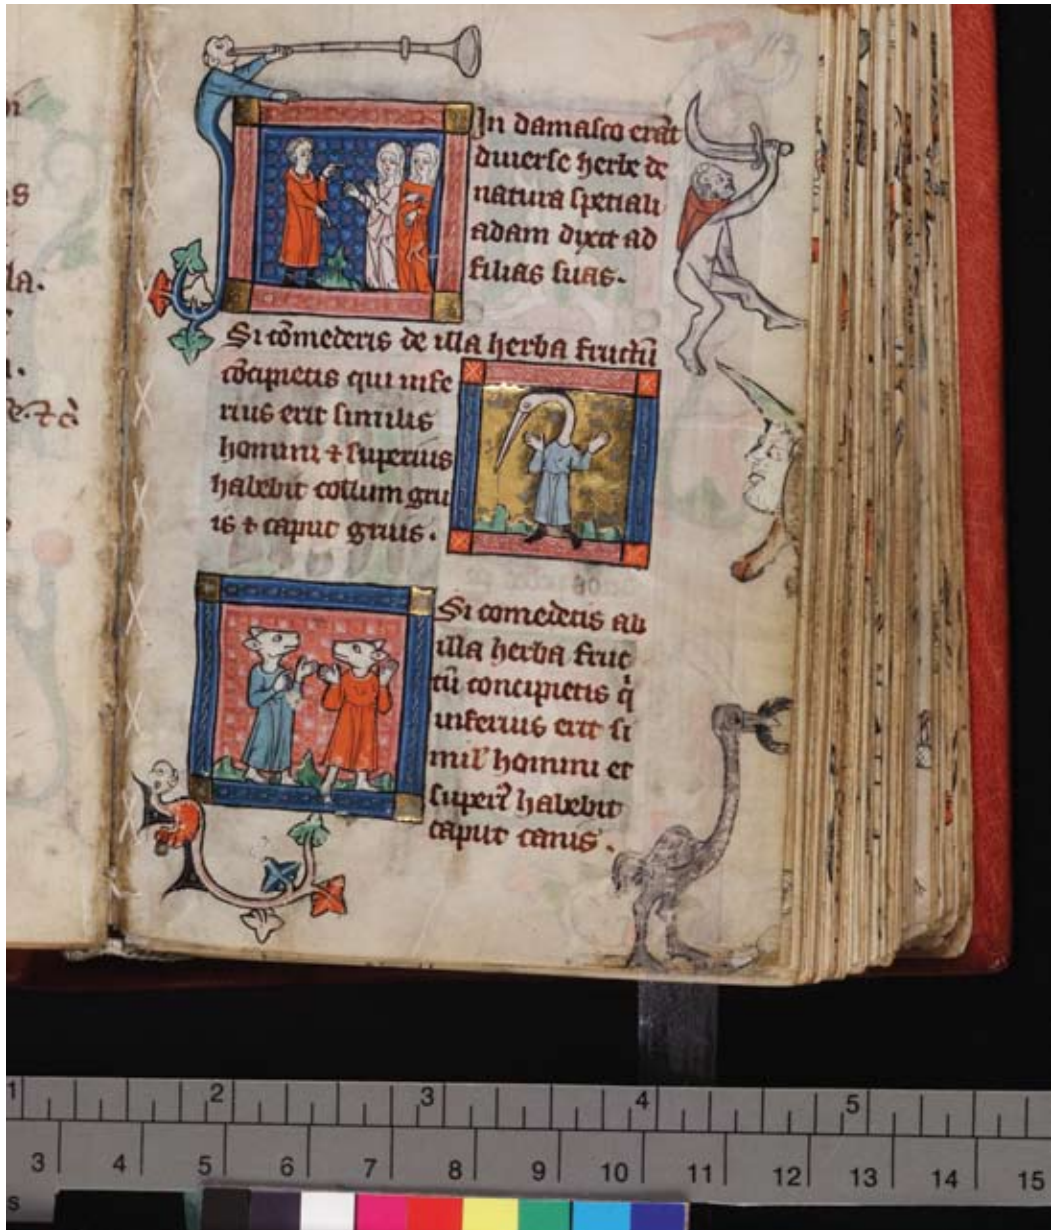 In damasco erāt
diuerse herbe de
natura spetiali
adam dixit ad
filias suas.
Si cōmederis de illa herba fructū
cōcipietis qui infe
rius erit similis
homini ⁊ superius
habebit collum gru
is ⁊ caput gruis.
Si comedetis ab
illa herba fruc
tū concipietis q̇
inferius erit si
mil' homini et
superꝰ habebit
caput canis.
1 2 3 4 5
3 4 5 6 7 8 9 10 11 12 13 14 15